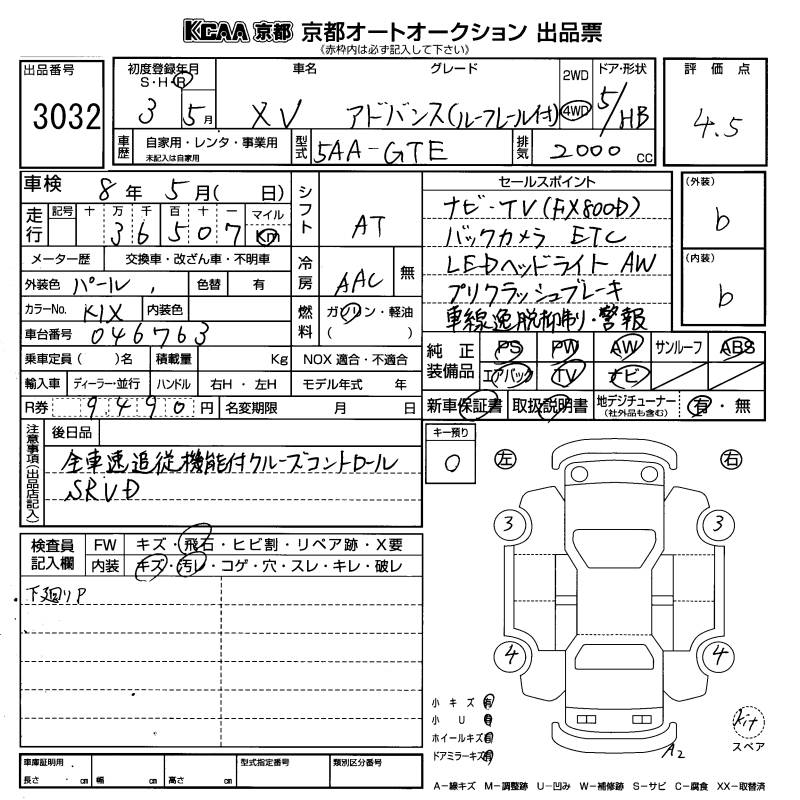 KCAA 京都 京都オートオークション 出品票
(赤枠内は必ず記入して下さい)
出品番号 3032
初度登録年月 S・H・R 3 5月
車名 XV
グレード アドバンス(ルーフレール付)
2WD 4WD
ドア・形状 5/HB
評価点 4.5
車歴 自家用・レンタ・事業用 未記入は自家用
型式 5AA-GTE
排気 2000 CC
車検 8年 5月( 日)
シフト AT
走行 記号 十 万 千 百 十 一 マイル
36507 Km
メーター歴 交換車・改ざん車・不明車
冷房 AAC 無
外装色 パール 色替 有
カラーNo. K1X 内装色
燃料 ガソリン・軽油 ( )
車台番号 046763
乗車定員( )名 積載量 Kg NOX 適合・不適合
輸入車 ディーラー・並行 ハンドル 右H・左H モデル年式 年
R券 9490円 名変期限 月 日
セールスポイント
ナビ-TV(FX800D)
バックカメラ ETC
LEDヘッドライト AW
プリクラッシュブレーキ
車線逸脱抑制・警報
(外装) b
(内装) b
純正装備品 PS PW AW サンルーフ ABS
エアバック TV ナビ
新車保証書 取扱説明書 地デジチューナー(社外品も含む) 有・無
注意事項(出品店記入)
後日品
全車速追従機能付クルーズコントロール
SRVD
キー預り 0
左 右
3 3
4 4
検査員記入欄 FW キズ・飛石・ヒビ割・リペア跡・X要
内装 キズ・汚レ・コゲ・穴・スレ・キレ・破レ
下廻りP
小キズ 有
小U 有
ホイールキズ 有
ドアミラーキズ 有
A2
kit
スペア
車庫証明用 長さ cm 幅 cm 高さ cm
型式指定番号 類別区分番号
A-線キズ M-調整跡 U-凹み W-補修跡 S-サビ C-腐食 XX-取替済